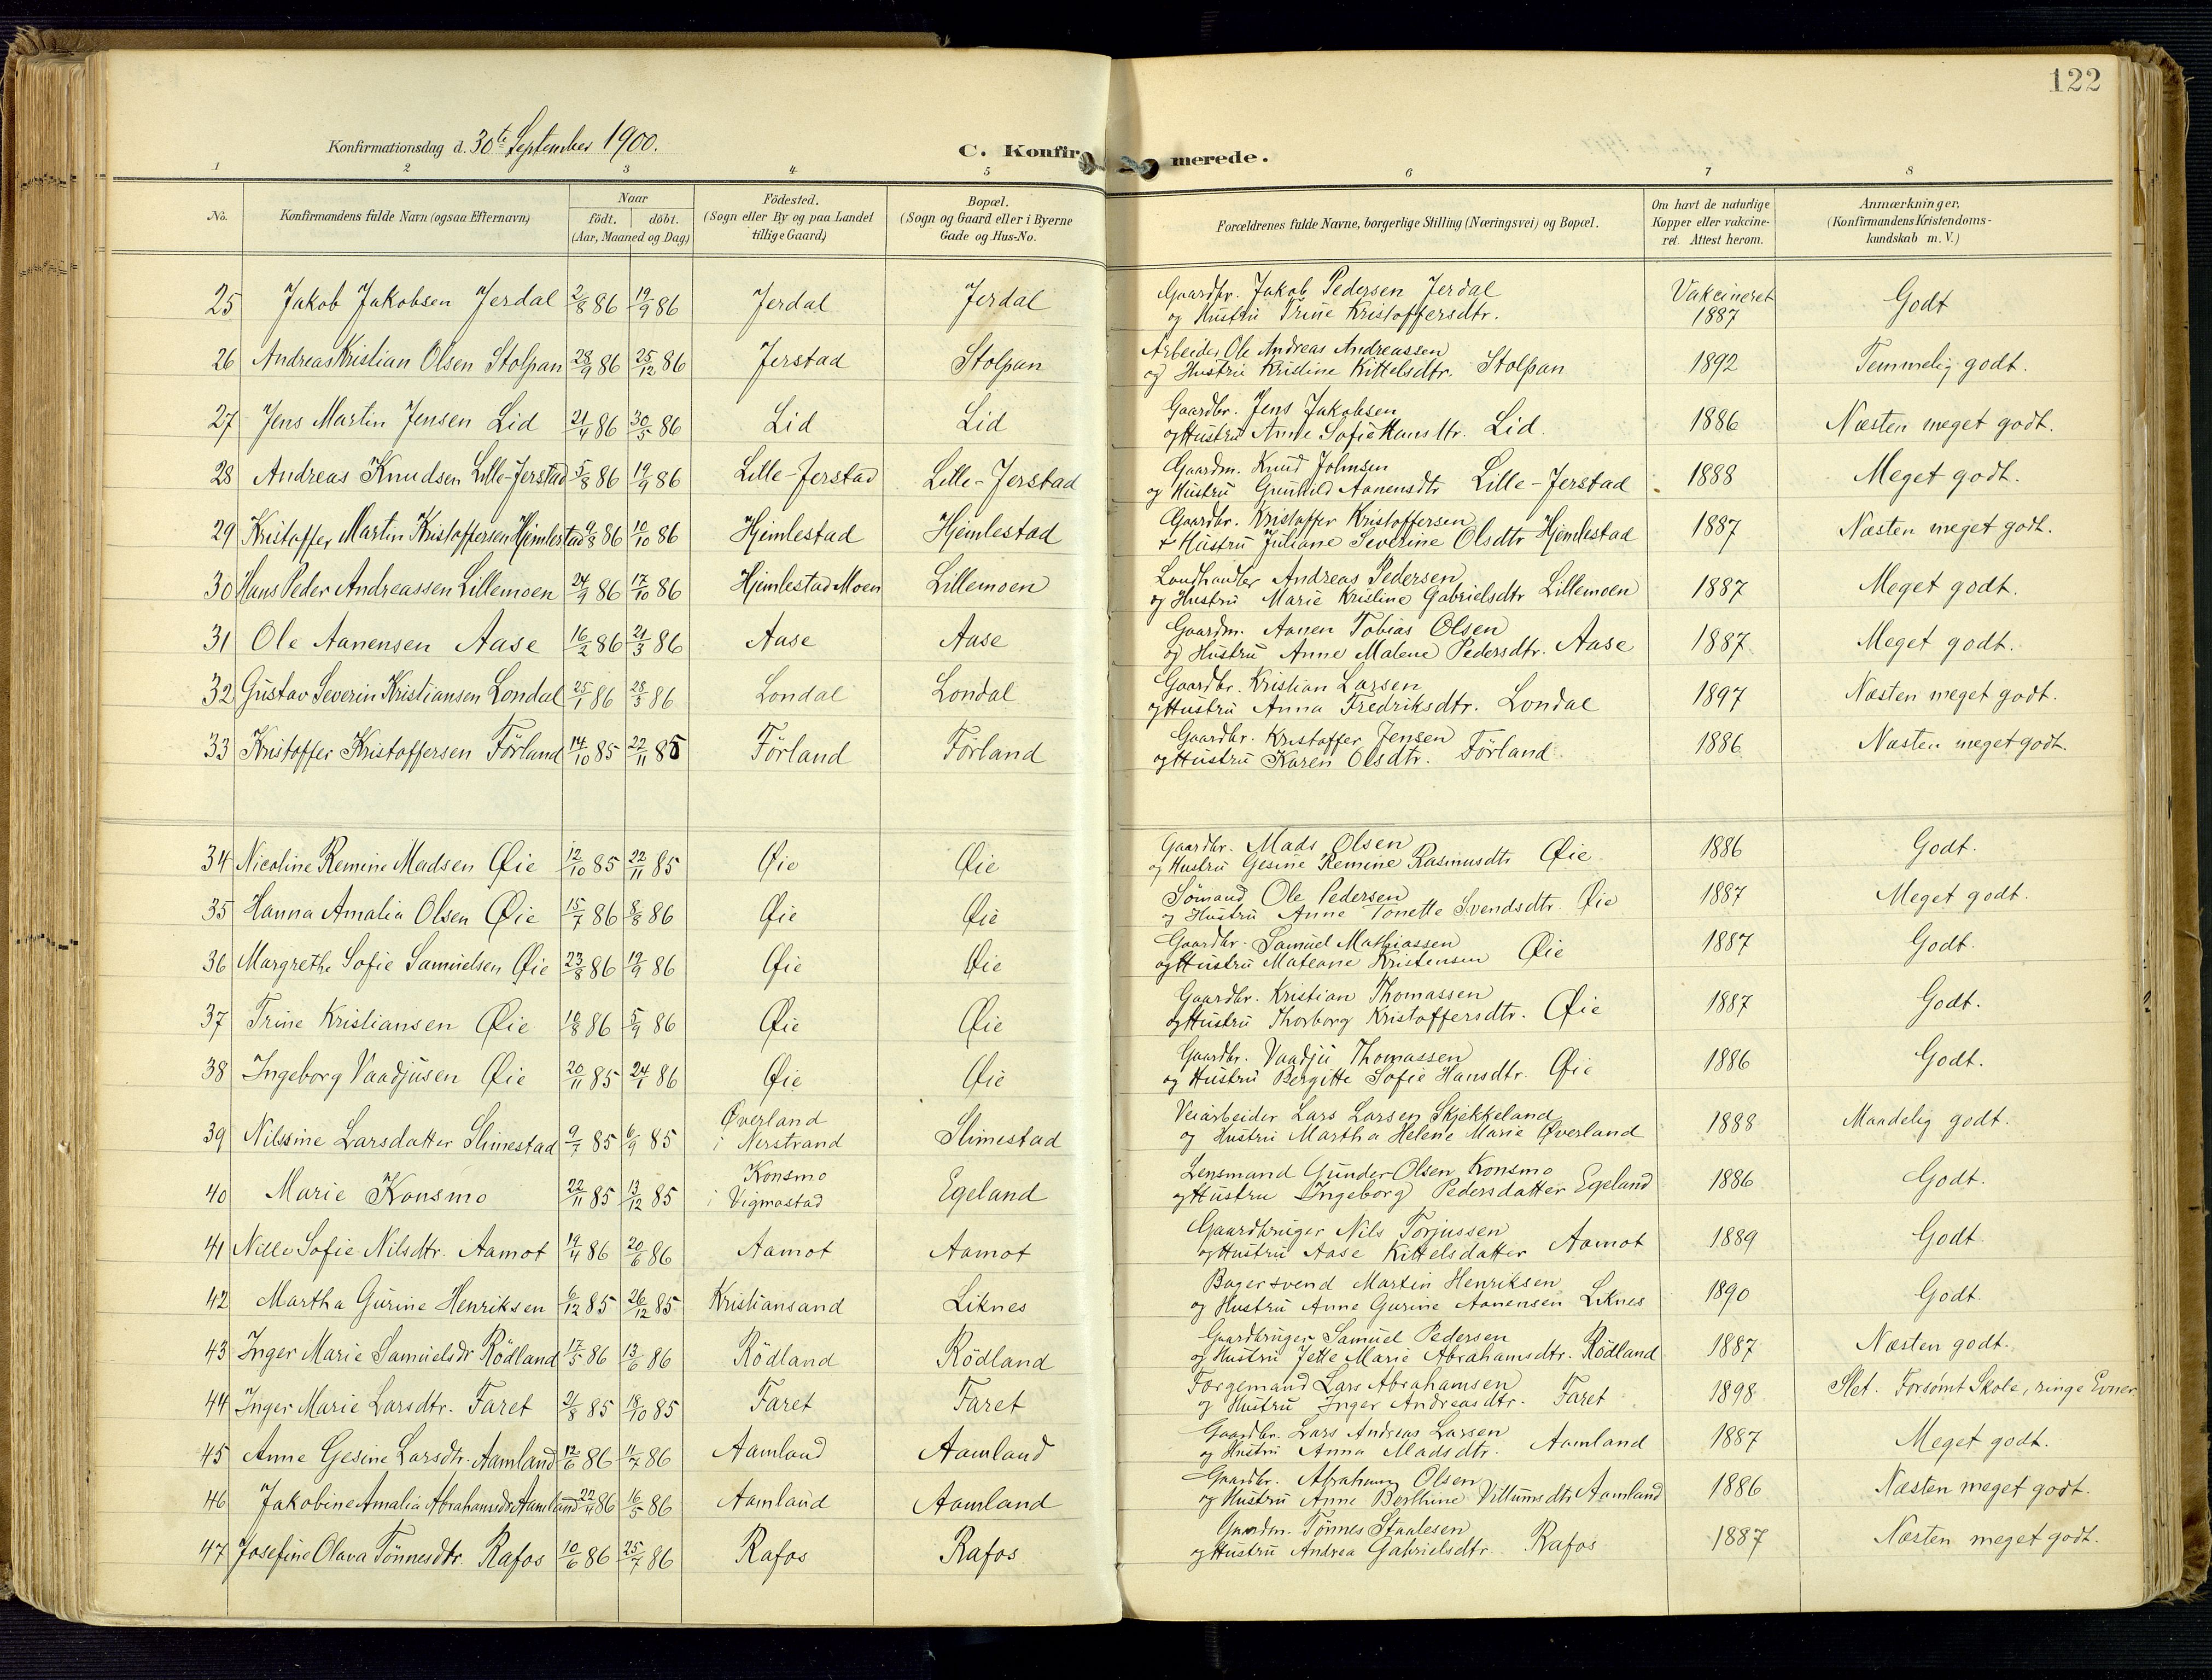 122
Konfirmationsdag d. 30te September 1900.
C. Konfirmerede.
1 2 3 4 5 6 7 8
No.
Konfirmandens fulde Navn (ogsaa Efternavn)
Naar
födt. döbt.
(Aar, Maaned og Dag)
Födested.
(Sogn eller By og paa Landet
tillige Gaard)
Bopæl.
(Sogn og Gaard eller i Byerne
Gade og Hus-No.
Forældrenes fulde Navne, borgerlige Stilling (Næringsvei) og Bopæl.
Om havt de naturlige
Kopper eller vakcine-
ret. Attest herom.
Anmærkninger,
(Konfirmandens Kristendoms-
kundskab m. V.)
25 Jakob Jakobsen Jerdal 2/8 86 19/9 86 Jerdal Jerdal Gaardbr. Jakob Pedersen Jerdal Vakcineret Godt
og Hustru Trine Kristoffersdtr. 1887
26 Andreas Kristian Olsen Stolpan 28/9 86 25/12 86 Jerstad Stolpan Arbeider Ole Andreas Andreassen 1892 Temmelig godt.
og Hustru Kristine Kittelsdtr. Stolpan
27 Jens Martin Jensen Lid 21/4 86 30/5 86 Lid Lid Gaardbr. Jens Jakobsen 1886 Næsten meget godt.
og Hustru Anne Sofie Hansdtr. Lid.
28 Andreas Knudsen Lille-Jerstad 5/8 86 19/9 86 Lille-Jerstad Lille-Jerstad Gaardm. Knud Johnsen 1888 Meget godt.
og Hustru Gunhild Aanensdtr Lille-Jerstad
29 Kristoffer Martin Kristoffersen Hjemlestad 9/8 86 10/10 86 Hjemlestad Hjemlestad Gaardbr. Kristoffer Kristoffersen 1887 Næsten meget godt.
+ Hustru Juliane Severine Olsdtr Hjemlestad
30 Hans Peder Andreassen Lillemoen 24/9 86 17/10 86 Hjemlestad Moen Lillemoen Landhandler Andreas Pedersen 1887 Meget godt.
og Hustru Marie Kristine Gabrielsdtr Lillemoen
31 Ole Aanensen Aase 16/2 86 21/3 86 Aase Aase Gaardm. Aanen Tobias Olsen 1887 Meget godt.
og Hustru Anne Malene Pedersdtr. Aase
32 Gustav Severin Kristiansen Londal 25/1 86 28/3 86 Londal Londal Gaardbr. Kristian Larsen 1897 Næsten meget godt.
og Hustru Anna Fredriksdtr. Londal
33 Kristoffer Kristoffersen Förland 14/10 85 22/11 85 Förland Förland Gaardbr. Kristoffer Jensen 1886 Næsten meget godt.
og Hustru Karen Olsdtr. Förland
34 Nicoline Remine Madsen Øie 12/10 85 22/11 85 Øie Øie Gaardbr. Mads Olsen 1886 Godt.
og Hustru Gesine Remine Rasmusdtr Øie
35 Hanna Amalia Olsen Øie 15/7 86 8/8 86 Øie Øie Sömand Ole Pedersen 1887 Meget godt.
og Hustru Anne Tonette Svendsdtr. Øie
36 Margrethe Sofie Samuelsen Øie 23/8 86 19/9 86 Øie Øie Gaardbr. Samuel Mathiassen 1887 Godt.
og Hustru Mateane Kristensen Øie
37 Trine Kristiansen Øie 10/8 86 5/9 86 Øie Øie Gaardbr. Kristian Thomassen 1887 Godt.
og Hustru Thorborg Kristoffersdtr. Øie
38 Ingeborg Vaadjusen Øie 20/11 85 24/1 86 Øie Øie Gaardbr. Vaadju Thomassen 1886 Godt.
og Hustru Bergitte Sofie Hansdtr. Øie
39 Nilssine Larsdatter Slimestad 9/7 85 6/9 85 Øverland i Nerstrand Slimestad Veiarbeider Lars Larsen Skjekkeland 1888 Maadelig godt.
og Hustru Martha Helene Marie Øverland
40 Marie Konsmo 22/11 85 13/12 85 Konsmo i Vigmostad Egeland Lensmand Gunder Olsen Konsmo 1886 Godt.
og Hustru Ingeborg Pedersdatter Egeland
41 Nille Sofie Nilsdtr. Aamot 19/4 86 20/6 86 Aamot Aamot Gaardbruger Nils Torjussen 1889 Godt
og Hustru Aase Kittelsdatter Aamot
42 Martha Gurine Henriksen 6/12 85 26/12 85 Kristiansand Liknes Bagersvend Martin Henriksen 1890 Godt.
og Hustru Anne Gurine Aanensen Liknes
43 Inger Marie Samuelsdr Rödland 17/5 86 13/6 86 Rödland Rödland Gaardbruger Samuel Pedersen 1887 Næsten godt.
og Hustru Jette Marie Abrahamsdtr. Rödland
44 Inger Marie Larsdtr. Faret 21/8 85 18/10 85 Faret Faret Færgemand Lars Abrahamsen 1898 Slet. Forsömt Skole, ringe Evner
og Hustru Inger Andreasdtr. Faret
45 Anne Gesine Larsdtr. Aamland 12/6 86 11/7 86 Aamland Aamland Gaardbr. Lars Andreas Larsen 1887 Meget godt.
og Hustru Anna Madsdtr. Aamland
46 Jakobine Amalia Abrahamsdtr Aamland 22/4 86 16/5 86 Aamland Aamland Gaardbr. Abraham Olsen 1886 Næsten meget godt.
og Hustru Anne Berthine Villumsdtr Aamland
47 Josefine Olava Tönnesdtr. Rafos 10/6 86 25/7 86 Rafos Rafos Gaardm. Tönnes Staalesen 1887 Næsten meget godt.
og Hustru Andrea Gabrielsdtr. Rafos